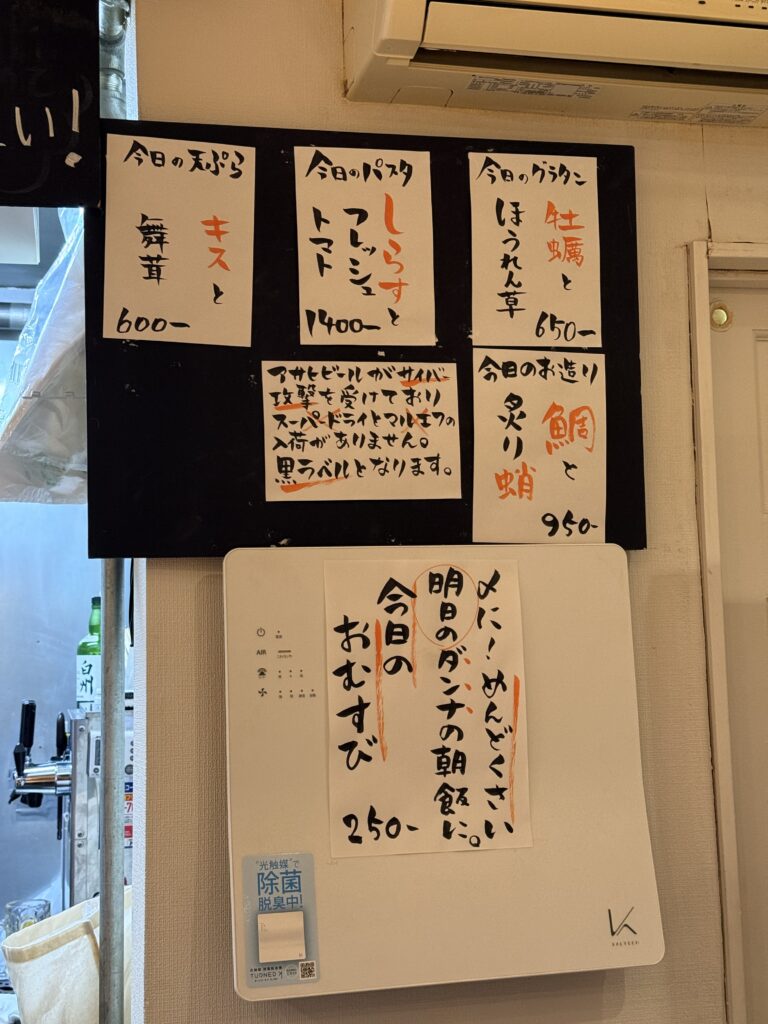 い!
今日の天ぷら
キスと
舞茸
600-
今日のパスタ
しらすと
フレッシュ
トマト
1400-
今日のグラタン
牡蠣と
ほうれん草
650-
アサヒビールがサイバー
攻撃を受けており
スーパードライとマルエフの
入荷がありません。
黒ラベルとなります。
今日のお造り
鯛と
炙り蛸
950-
〆に!めんどくさい
明日のダンナの朝飯に。
今日の
おむすび
250-
AIR
白州
"光触媒"で
除菌
脱臭中!
TURNED K